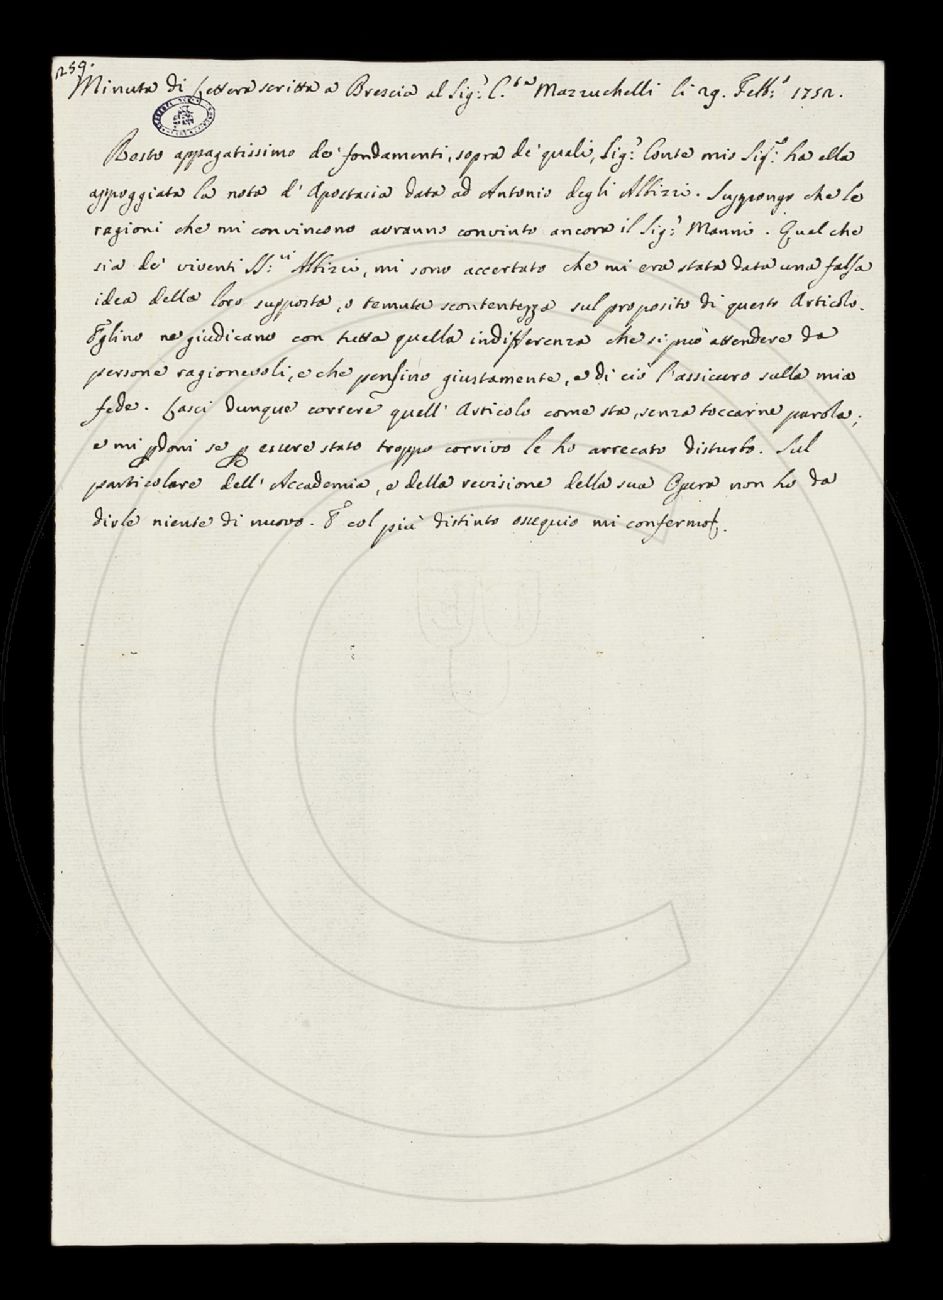 259.
Minuta di Lettera scritta a Brescia al Sig.r C.te Mazzuchelli li 29. Febb.o 1752.
Resto appagatissimo de' fondamenti, sopra de' quali, Sig.r Conte mio Sig.re ha ella
appoggiata la nota d'Apostasia data ad Antonio degli Albizi. Suppongo che le
ragioni che mi convincono avranno convinto ancora il Sig.r Manni. Qual che
sia de' viventi SS.ri Albizi, mi sono accertato che mi era stata data una falsa
idea della loro supposta, o temuta scontentezza sul proposito di questo Articolo.
Eglino ne giudicano con tutta quella indifferenza che si può attendere da
persone ragionevoli, e che pensino giustamente, e di ciò l'assicuro sulla mia
fede. Lasci dunque correre quell'Articolo come sta, senza toccarne parola;
e mi pdoni se p essere stato troppo corrivo le ho arrecato disturbo. Sul
particolare dell'Accademia, e della revisione della sua Opera non ho da
dirle niente di nuovo. E col più distinto ossequio mi confermo